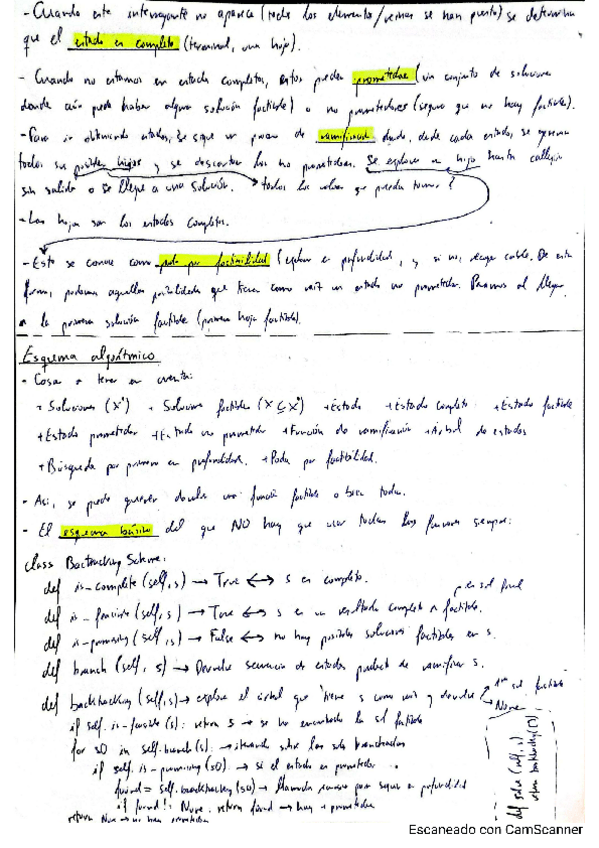 - Cuando este interrogante no aparece (todos los elementos/ se han puesto) se determina
que el estado es completo (terminal, una hoja).
- Cuando no estamos en estados completos, estos pueden prometedores (un conjunto de soluciones
donde aún puede haber alguna solución factible) o no prometedores (seguro que no hay factible).
- Para ir obteniendo estados, se sigue un proceso de ramificación donde, desde cada estado, se generan
todos sus posibles hijos y se descartan los no prometedores. Se explora un hijo hasta callejón
sin salida o se llegue a una solución. → todos los valores que pueden tomar?
- Las hojas son los estados completos.
- Esto se conoce como poda por factibilidad (explora en profundidad, y si no, recoge cable. De esta
forma, podamos aquellas posibilidades que tienen como raíz un estado no prometedor. Paramos al llegar
a la primera solución factible (primera hoja factible).
Esquema algorítmico
- Cosas a tener en cuenta:
+ Soluciones (X') + Soluciones factibles (X ⊆ X') + Estado + Estado completo + Estado factible
+ Estado prometedor + Estado no prometedor + Función de ramificación + Árbol de estados
+ Búsqueda por primero en profundidad. + Poda por factibilidad.
- Así, se puede querer devolver una función factible o bien todas.
- El esquema básico del que NO hay que usar todas las funciones siempre:
class BacktrackingScheme:
def is-complete (self, s) → True ↔ s es completo.
def is-feasible (self, s) → True ↔ s es un resultado completo factible. → es sol final
def is-promising (self, s) → False ↔ no hay posibles soluciones factibles en s.
def branch (self, s) → Devuelve secuencia de estados producto de ramificar s.
def backtracking (self, s) → explora el árbol que tiene s como raíz y devuelve 1ª sol factible
None
if self.is-feasible(s): return s → se ha encontrado la sol factible
for s0 in self.branch(s): → iterando sobre las sols ramificadas
if self.is-promising(s0): → si el estado es prometedor
found = self.backtracking(s0) → llamada recursiva para seguir en profundidad
if found != None: return found → hay + prometedores
return None → no hay prometedores
def solve (self, s)
return backtracking([])
Escaneado con CamScanner